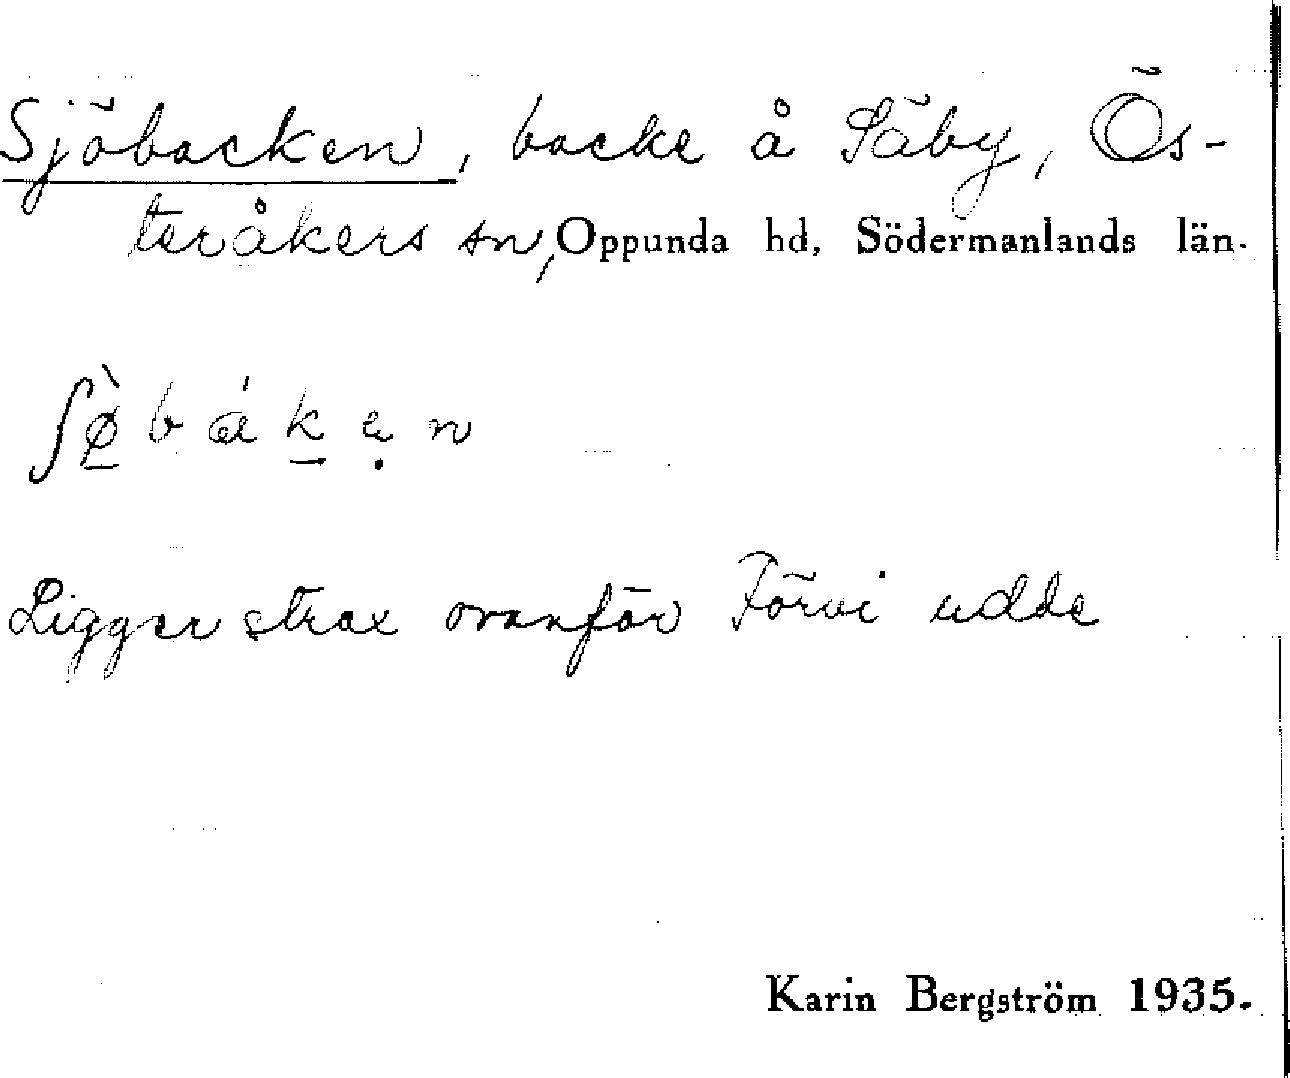 Sjöbacken, backe å Säby, Ös-
teråkers sn, Oppunda hd, Södermanlands län.
ʃø̠̀bák̠ẹn
Ligger strax ovanför Förvi udde
Karin Bergström 1935.